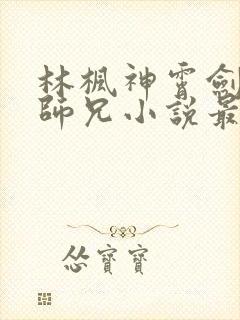 林楓神霄劍
師兄小說最
怂寶寶